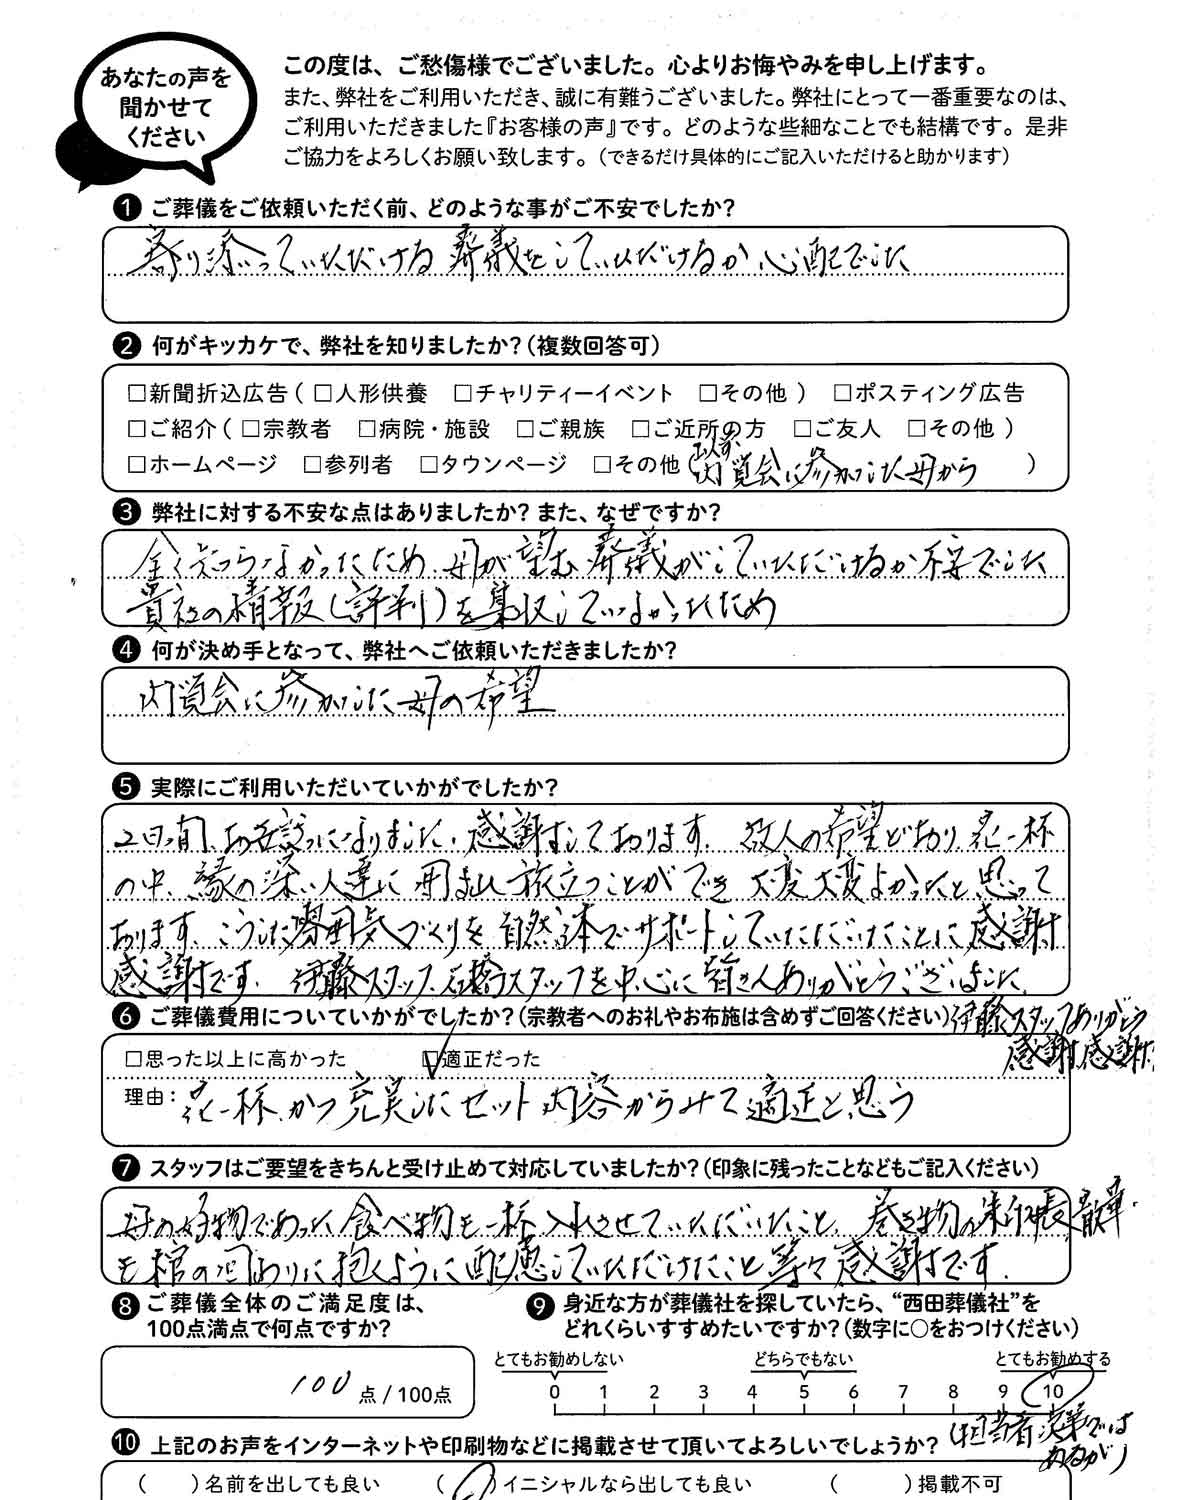 あなたの声を
聞かせて
ください
この度は、ご愁傷様でございました。心よりお悔やみを申し上げます。
また、弊社をご利用いただき、誠に有難うございました。弊社にとって一番重要なのは、
ご利用いただきました『お客様の声』です。どのような些細なことでも結構です。是非
ご協力をよろしくお願い致します。（できるだけ具体的にご記入いただけると助かります）
❶ ご葬儀をご依頼いただく前、どのような事がご不安でしたか？
寄り添っていただける葬儀をしていただけるか心配でした
❷ 何がキッカケで、弊社を知りましたか？（複数回答可）
□新聞折込広告（ □人形供養 □チャリティーイベント □その他 ） □ポスティング広告
□ご紹介（ □宗教者 □病院・施設 □ご親族 □ご近所の方 □ご友人 □その他 ）
□ホームページ □参列者 □タウンページ □その他（以前、内覧会に参加した母から ）
❸ 弊社に対する不安な点はありましたか？また、なぜですか？
全く知らなかったため、母が望む葬儀がしていただけるか不安でした
貴社の情報（評判）を集収していなかったため
❹ 何が決め手となって、弊社へご依頼いただきましたか？
内覧会に参加した母の希望
❺ 実際にご利用いただいていかがでしたか？
2日間、お世話になりました。感謝しております。故人の希望どおり、花一杯
の中、縁の深い人達に囲まれ旅立つことができ大変大変よかったと思って
おります。こうした雰囲気づくりを自然体でサポートしていただいたことに感謝
感謝です。伊藤スタッフ、スタッフを中心に皆さんありがとうございました。
❻ ご葬儀費用についていかがでしたか？（宗教者へのお礼やお布施は含めずご回答ください）
伊藤スタッフありがとう
感謝、感謝
□思った以上に高かった ☑適正だった
理由：花一杯、かつ充実したセット内容からみて適正と思う
❼ スタッフはご要望をきちんと受け止めて対応していましたか？（印象に残ったことなどもご記入ください）
母の好物であった食べ物も一杯入れさせていただいたこと、巻き物の朱印帳、散華
も棺の回りに抱くように配慮していただけたこと等々感謝です。
❽ ご葬儀全体のご満足度は、
100点満点で何点ですか？
100 点 / 100点
❾ 身近な方が葬儀社を探していたら、“西田葬儀社”を
どれくらいすすめたいですか？（数字に○をおつけください）
とてもお勧めしない どちらでもない とてもお勧めする
0 1 2 3 4 5 6 7 8 9 10
（担当者次第では
あるが）
❿ 上記のお声をインターネットや印刷物などに掲載させて頂いてよろしいでしょうか？
（ ）名前を出しても良い （○）イニシャルなら出しても良い （ ）掲載不可